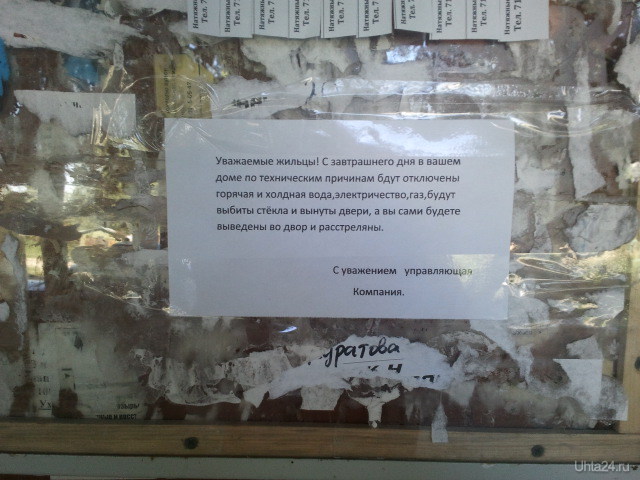 Натяжные Натяжные Натяжные Натяжные Натяжные
Тел. 7 Тел. 7 Тел. 7 Тел. 7 Тел. 7
Уважаемые жильцы! С завтрашнего дня в вашем
доме по техническим причинам бдут отключены
горячая и холдная вода,электричество,газ,будут
выбиты стёкла и вынуты двери, а вы сами будете
выведены во двор и расстреляны.
С уважением управляющая
Компания.
уратова
Uhta24.ru